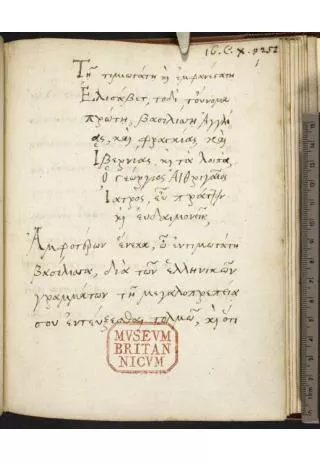 16. C. X. p 252
1
Τῇ τιμιωτάτῃ κỳ ἐμφανεστάτῃ
Ἐλισάβετ, τοδὶ τοὔνομα
πρώτῃ, βασιλίσσῃ Ἀγγλί-
ας, καὶ φραγκίας καὶ
Ἰβερνίας, κỳ τὰ λοιπὰ,
Ὁ γεώργιος Αἰθρίγαος
Ἰατρὸς, εὖ πράττειν
κỳ εὐδαιμονεῖν,
Ἀμφοτέρων ἕνεκα, ὦ ἐντιμωτάτη
βασίλισσα, διὰ τῶν ἑλληνικῶν
γραμμάτων τῇ μεγαλοπρεπείᾳ
σου ἐντεύξεσθαι τολμῶ, κỳ ὅτι
MVSEVM
BRITAN
NICVM